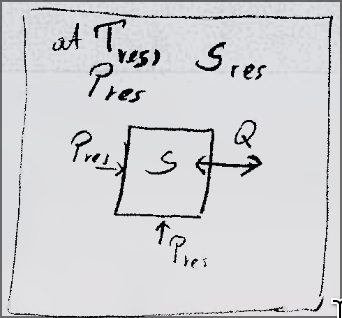 at Tres, Sres
Pres
Q
Pres S
Pres